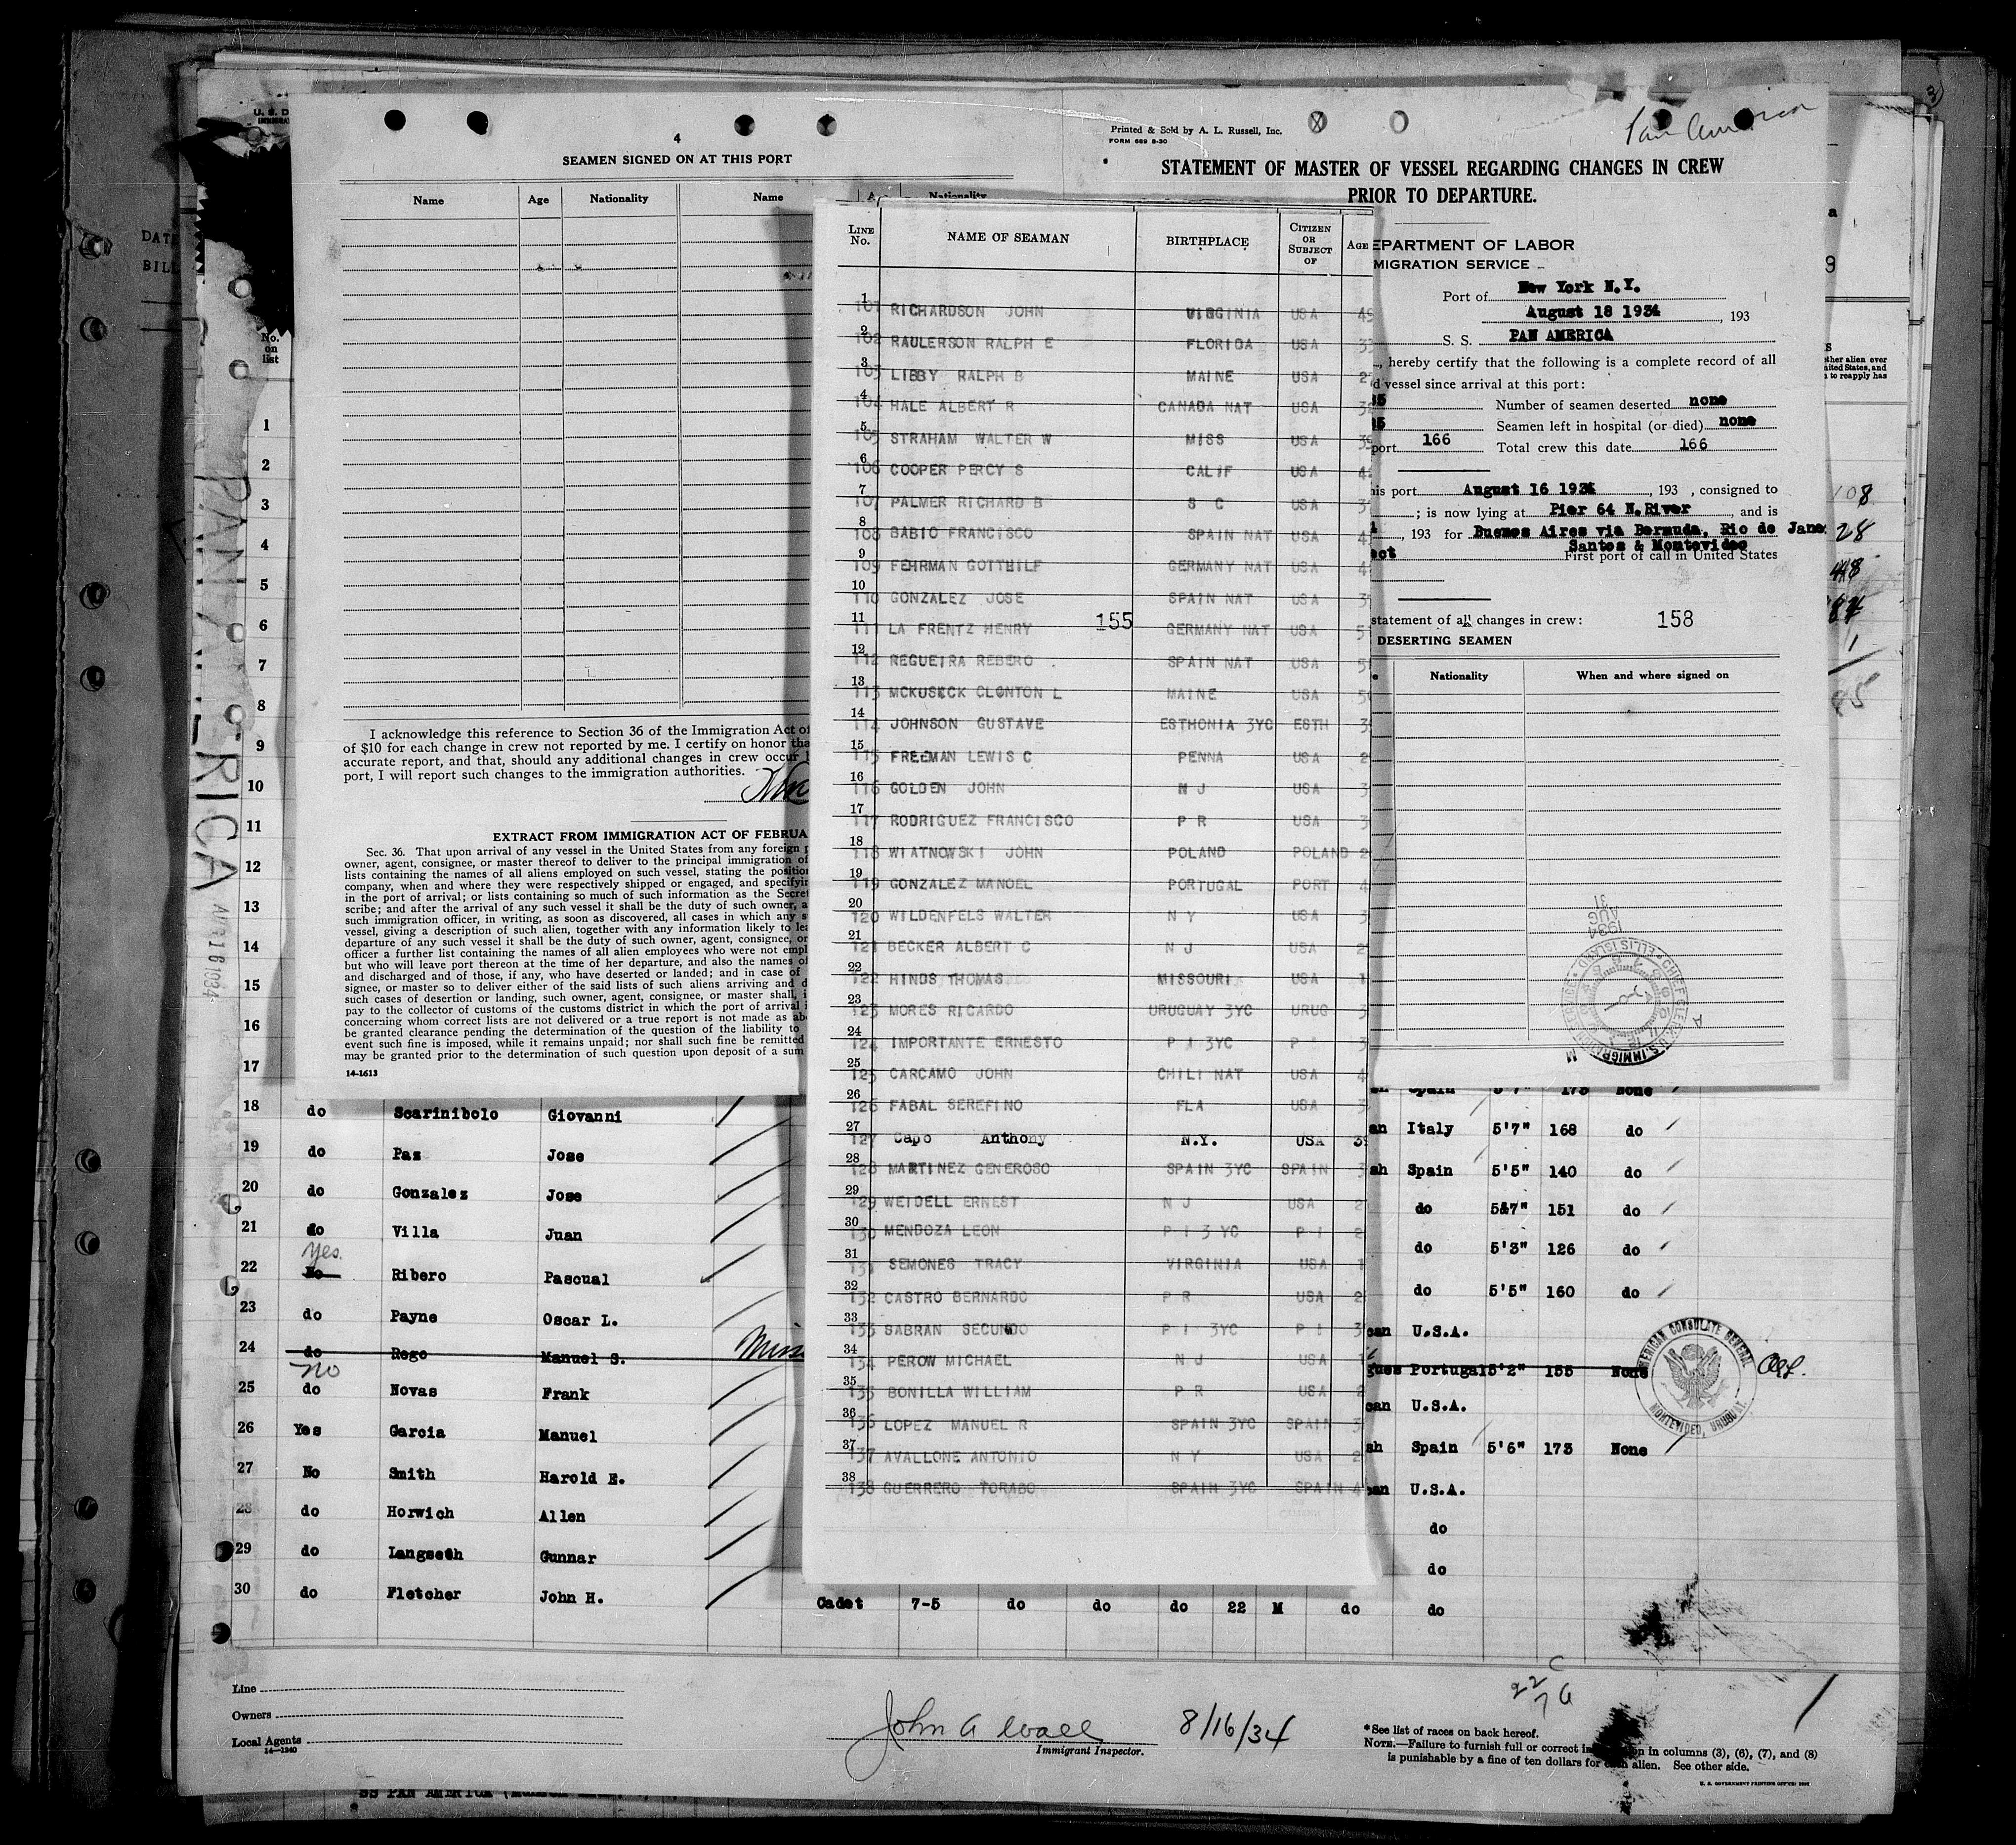 Pan America
4
SEAMEN SIGNED ON AT THIS PORT
Name Age Nationality Name Nationality
Printed & Sold by A. L. Russell, Inc.
FORM 689 8-30
STATEMENT OF MASTER OF VESSEL REGARDING CHANGES IN CREW
PRIOR TO DEPARTURE.
EPARTMENT OF LABOR
MIGRATION SERVICE
Port of New York N.Y.
August 18 1934, 193
S. S. PAN AMERICA
, hereby certify that the following is a complete record of all
d vessel since arrival at this port:
Number of seamen deserted none
Seamen left in hospital (or died) none
port 166 Total crew this date 166
his port August 16 1934, 193 , consigned to
; is now lying at Pier 64 N.River, and is
, 193 for Buenos Aires via Bermuda, Rio de Jane
Santos & Montevideo
First port of call in United States
statement of all changes in crew: 158
DESERTING SEAMEN
Nationality When and where signed on
LINE No. NAME OF SEAMAN BIRTHPLACE CITIZEN OR SUBJECT OF AGE
1 101 RICHARDSON JOHN VIRGINIA USA
2 102 RAULERSON RALPH E FLORIDA USA
3 103 LIBBY RALPH B MAINE USA
4 104 HALE ALBERT R CANADA NAT USA
5 105 STRAHAM WALTER W MISS USA
6 106 COOPER PERCY S CALIF USA
7 107 PALMER RICHARD B S C USA
8 108 BABIO FRANCISCO SPAIN NAT USA
9 109 FEHRMAN GOTTHILF GERMANY NAT USA
10 110 GONZALEZ JOSE SPAIN NAT USA
11 111 LA FRENTZ HENRY 155 GERMANY NAT USA
12 112 REGUEIRA REBERO SPAIN NAT USA
13 113 MCKUSICK CLONTON L MAINE USA
14 114 JOHNSON GUSTAVE ESTHONIA 3YC ESTH
15 115 FREEMAN LEWIS C PENNA USA
16 116 GOLDEN JOHN N J USA
17 117 RODRIGUEZ FRANCISCO P R USA
18 118 WIATNOWSKI JOHN POLAND POLAND
19 119 GONZALEZ MANOEL PORTUGAL PORT
20 120 WILDENFELS WALTER N Y USA
21 121 BECKER ALBERT C N J USA
22 122 HINDS THOMAS MISSOURI USA
23 123 MORES RICARDO URUGUAY 3YC URUG
24 124 IMPORTANTE ERNESTO P I 3YC P I
25 125 CARCAMO JOHN CHILI NAT USA
26 126 FABAL SEREFINO FLA USA
27 127 Capo Anthony N.Y. USA
28 128 MARTINEZ GENEROSO SPAIN 3YC SPAIN
29 129 WEIDELL ERNEST N J USA
30 130 MENDOZA LEON P I 3 YC P I
31 131 SEMONES TRACY VIRGINIA USA
32 132 CASTRO BERNARDO P R USA
33 133 SABRAN SECUNDO P I 3YC P I
34 134 PEROW MICHAEL N J USA
35 135 BONILLA WILLIAM P R USA
36 136 LOPEZ MANUEL R SPAIN 3YC SPAIN
37 137 AVALLONE ANTONIO N Y USA
38 138 GUERRERO TORABO SPAIN 3YC SPAIN
I acknowledge this reference to Section 36 of the Immigration Act of
of $10 for each change in crew not reported by me. I certify on honor tha
accurate report, and that, should any additional changes in crew occur
port, I will report such changes to the immigration authorities.
EXTRACT FROM IMMIGRATION ACT OF FEBRUA
Sec. 36. That upon arrival of any vessel in the United States from any foreign
owner, agent, consignee, or master thereof to deliver to the principal immigration of
lists containing the names of all aliens employed on such vessel, stating the position
company, when and where they were respectively shipped or engaged, and specifyin
in the port of arrival; or lists containing so much of such information as the Secret
scribe; and after the arrival of any such vessel it shall be the duty of such owner, a
such immigration officer, in writing, as soon as discovered, all cases in which any
vessel, giving a description of such alien, together with any information likely to le
departure of any such vessel it shall be the duty of such owner, agent, consignee, or
officer a further list containing the names of all alien employees who were not empl
but who will leave port thereon at the time of her departure, and also the names of
and discharged and of those, if any, who have deserted or landed; and in case of
signee, or master so to deliver either of the said lists of such aliens arriving and d
such cases of desertion or landing, such owner, agent, consignee, or master shall, i
pay to the collector of customs of the customs district in which the port of arrival i
concerning whom correct lists are not delivered or a true report is not made as ab
be granted clearance pending the determination of the question of the liability to
event such fine is imposed, while it remains unpaid; nor shall such fine be remitted
may be granted prior to the determination of such question upon deposit of a sum
14-1613
PAN AMERICA
No. on list
1
2
3
4
5
6
7
8
9
10
11
12
13
14
15
16
17
18 do Scarinibolo Giovanni an Italy 5'7" 168 do
19 do Paz Jose sh Spain 5'5" 140 do
20 do Gonzalez Jose do 5&7" 151 do
21 do Villa Juan do 5'3" 126 do
Yes.
22 No Ribero Pascual do 5'5" 160 do
23 do Payne Oscar L. can U.S.A.
24 do Rego Manuel S. gues Portugal 5'2" 155 None
no
25 do Novas Frank can U.S.A.
26 Yes Garcia Manuel sh Spain 5'6" 173 None
27 No Smith Harold E. can U.S.A.
28 do Horwich Allen do
29 do Langseth Gunnar do
30 do Fletcher John H. Cadet 7-5 do do do 22 M do do
AMERICAN CONSULATE GENERAL
MONTEVIDEO, URUGUAY.
Line
Owners
Local Agents
14-1240
John A Wall 8/16/34
Immigrant Inspector.
*See list of races on back hereof.
NOTE.—Failure to furnish full or correct in on in columns (3), (6), (7), and (8)
is punishable by a fine of ten dollars for each alien. See other side.
SS PAN AMERICA